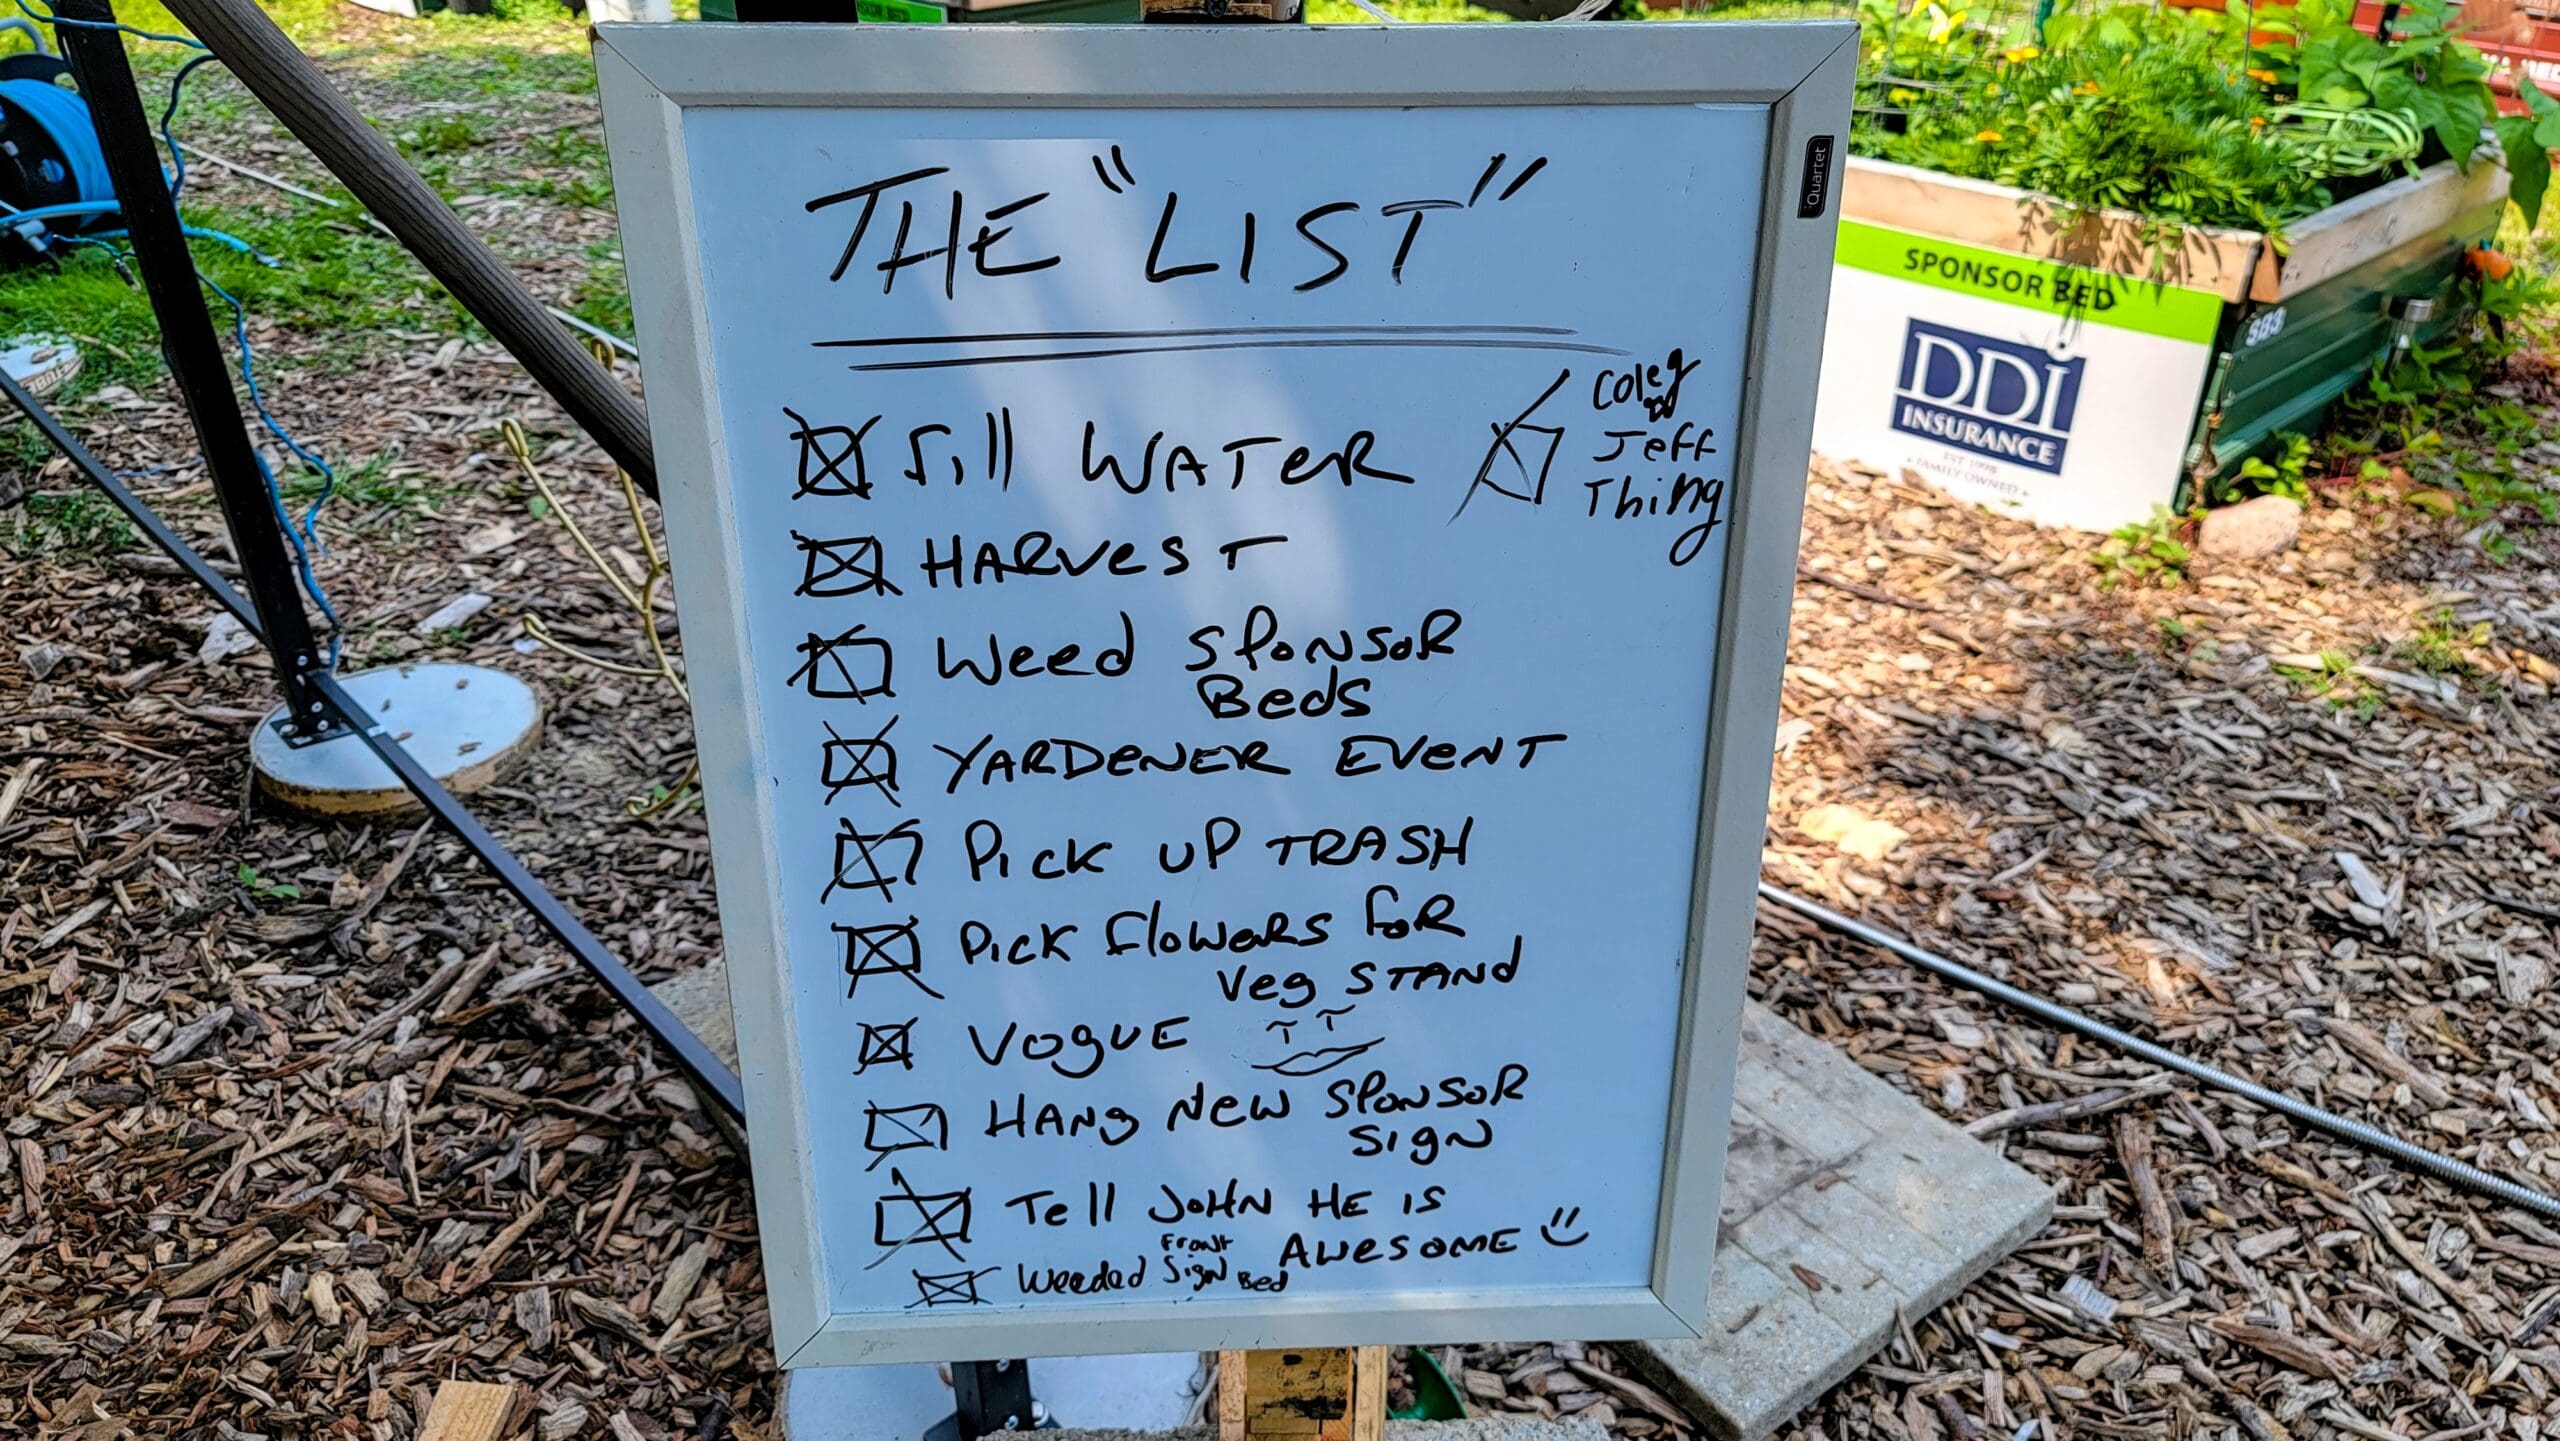 THE "LIST"
Fill WATER
Jeff
Thing
HARVEST
Weed SPONSOR
Beds
YARDENER EVENT
Pick UP TRASH
Pick Flowers FOR
Veg STAND
VOGUE
HANg New SPONSOR
SigN
Tell JOHN HE IS
AWESOME
Weeded Front
Sign Bed
Quartet
SPONSOR BED
DDi
INSURANCE
EST 1998
• FAMILY OWNED •
SB3